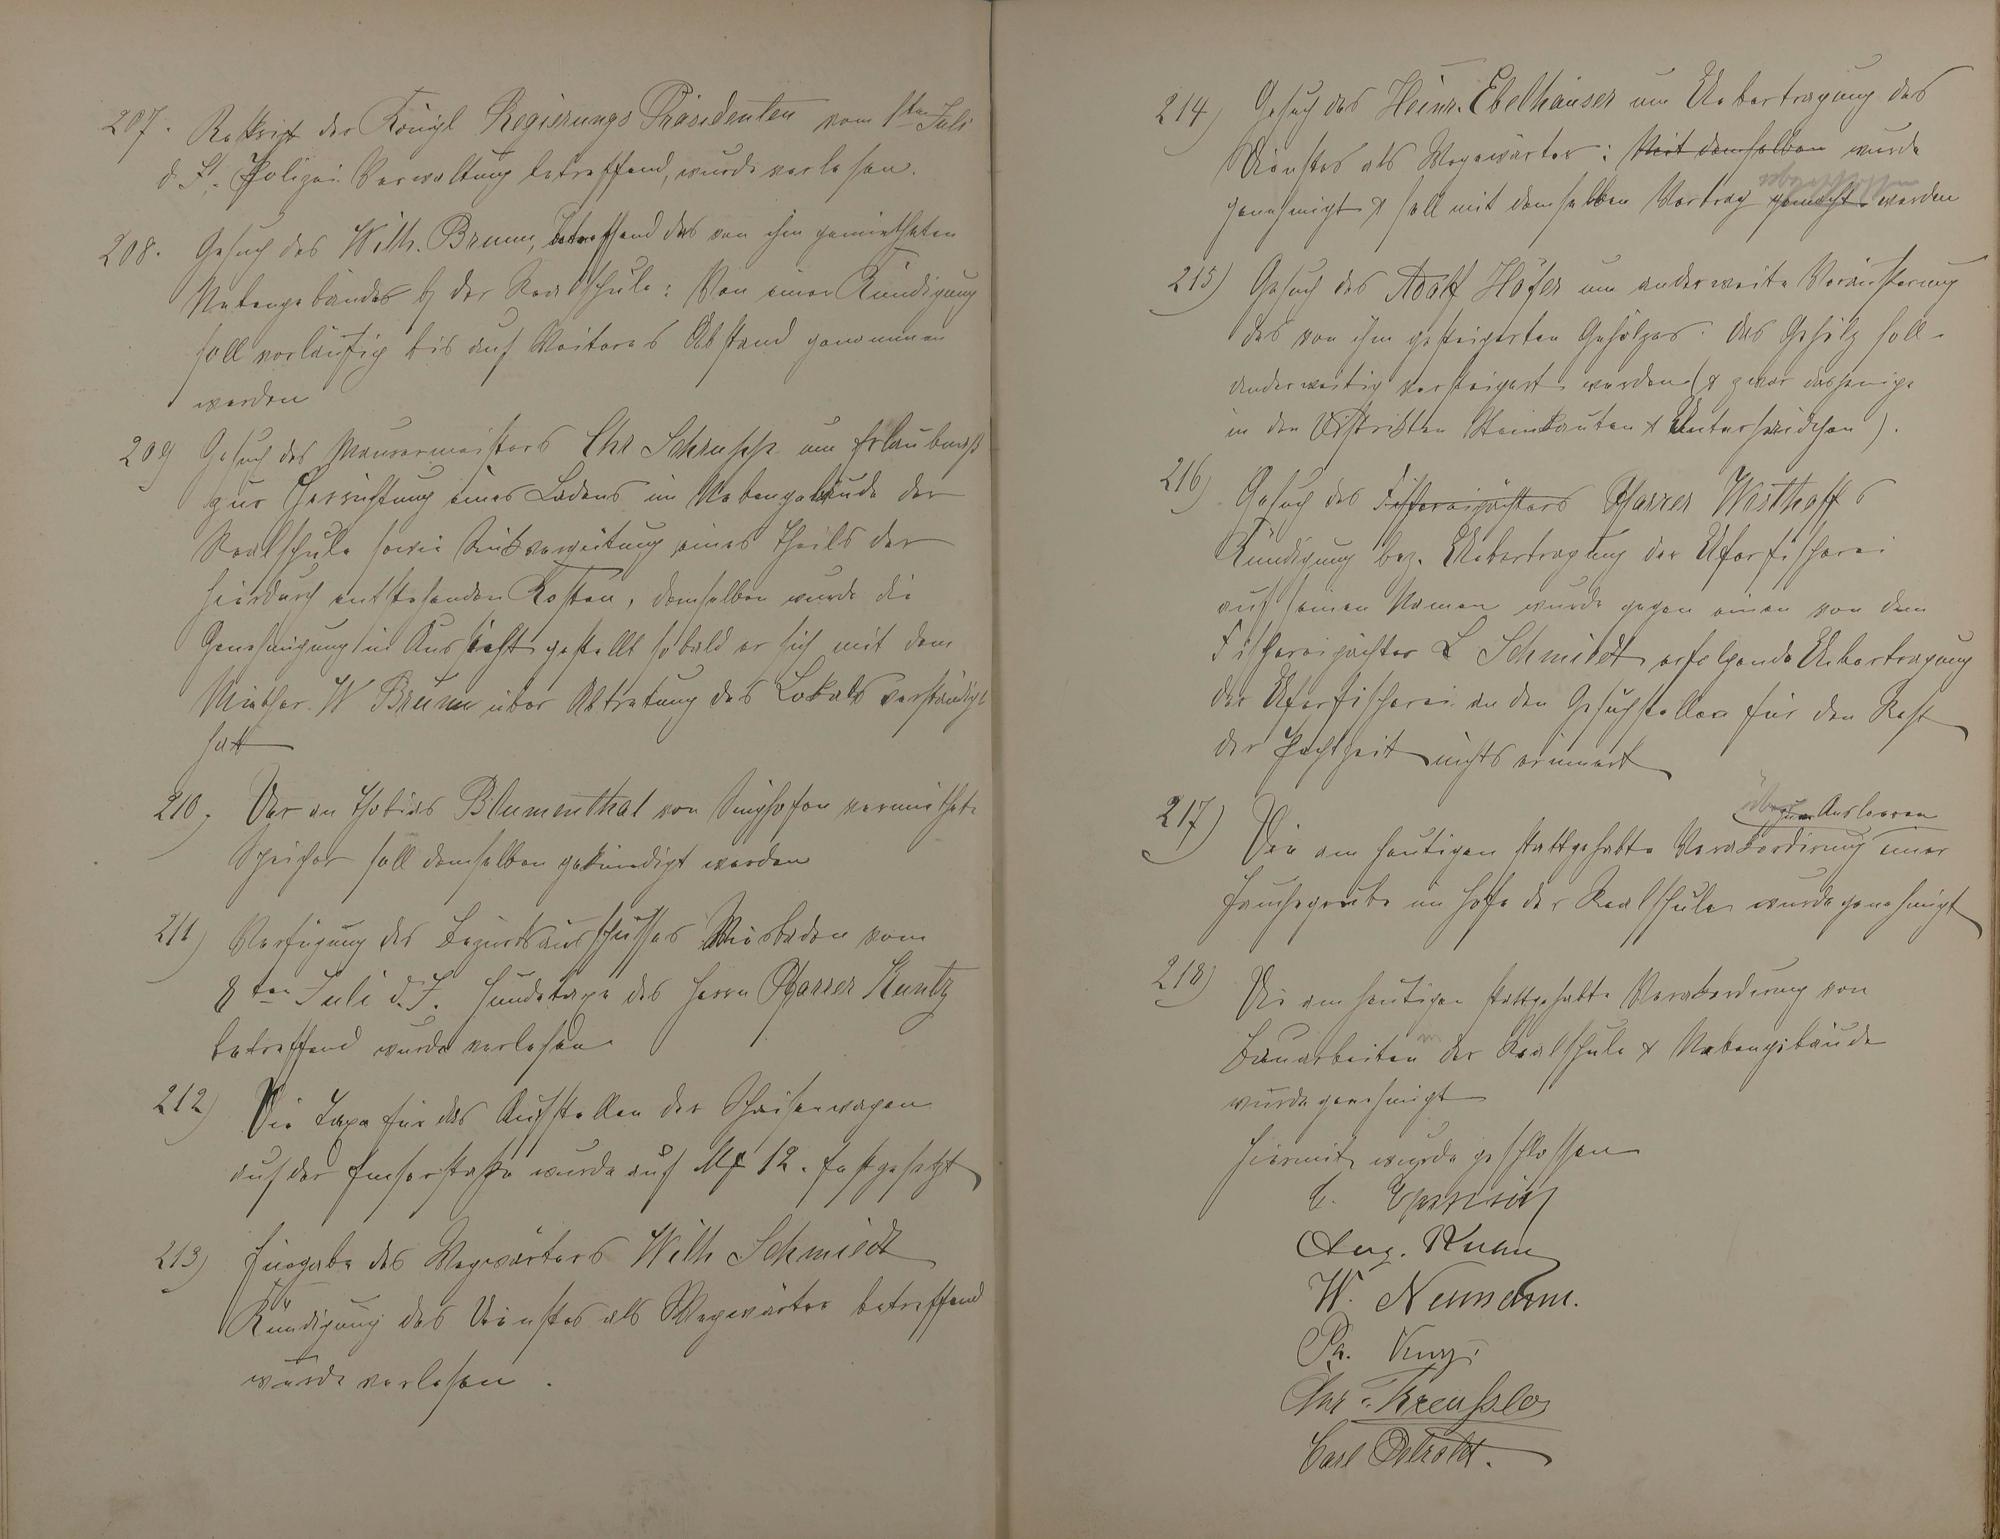 207. Reskript des Königl Regierungs Präsidenten vom 1ten Juli
d. J. Polizei Verwaltung betreffend, wurde verlesen.
208. Gesuch des Wilh. Brumm, betreffend das von ihm gemietheten
Nebengebäudes b/ der Realschule: Von einer Kündigung
soll vorläufig bis auf Weiteres Abstand genommen
werden
209 Gesuch des Maurermeisters Chr Schrupp um Erlaubniß
zur Herrichtung eines Ladens im Nebengebäude der
Realschule sowie Rückvergütung eines Theils der
hierdurch entstehenden Kosten, demselben wurde die
Genehmigung in Aussicht gestellt sobald er sich mit dem
Miether W Brumm über Abtretung des Lokals verständigt
hat
210. Der an Thobias Blumenthal von Singhofen vermiethete
Speicher soll demselben gekündigt werden
211) Verfügung des Bezirksausschusses Wiesbaden vom
8ten Juli d. J. Hundetaxe des Herrn Pfarrer Kuntz
betreffend wurde verlesen
212) Die Taxe für das Aufstellen der Scheiserwagen
auf der Emserstraße wurde auf Mk 12. festgesetzt
213) Eingabe des Wegewärters Wilh Schmidt
Kündigung des Dienstes als Wegewärter betreffend
wurde verlesen.
214) Gesuch des Heinr. Ebelhäuser um Uebertragung des
Dienstes als Wegewärter: Mit demselben wurde
genehmigt & soll mit demselben Vertrag gemacht werden
215) Gesuch des Adolf Höfer um anderweite Veräußerung
des von ihm gesteigerten Gehölzes. Das Gehölz soll
anderweitig versteigert werden (& zwar dasjenige
in den Distrikten Steinkauten &
216) Gesuch des Fischereipächters Pfarrer Westhoff
Kündigung bez. Uebertragung der Uferfischerei
auf seinen Namen wurde gegen einen von dem
Fischereipächter L Schmidt erfolgende Uebertragung
der Uferfischerei an den Gesuchsteller für den Rest
der Pachtzeit nichts erinnert
217) Die am heutigen stattgehabte Verakkordirung zum Ausleeren einer
Jauchegrube im Hofe der Realschule wurde genehmigt
218) Die am heutigen stattgehabte Verakkordirung von
Bauarbeiten in der Realschule & Nebengebäude
wurde genehmigt
Hiermit wurde geschlossen
Aug.
W. Neumann.
Ph.
Chr. Kreußler
Carl